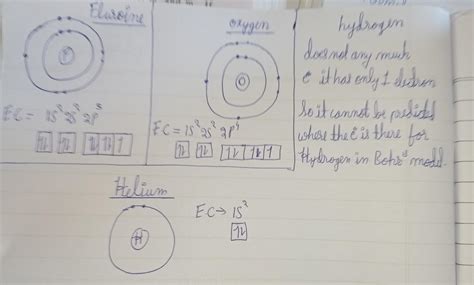 Fluroine
F
EC = 1S² 2S² 2P⁵
1L 1L 1L 1L 1
oxygen
O
EC = 1S² 2S² 2P⁴
1L 1L 1L 1 1
hydrogen
does not any much
e⁻ it has only 1 electron
So it cannot be
where the e⁻ is there for
Hydrogen in Bohr's model.
Helium
H
EC → 1S²
1L